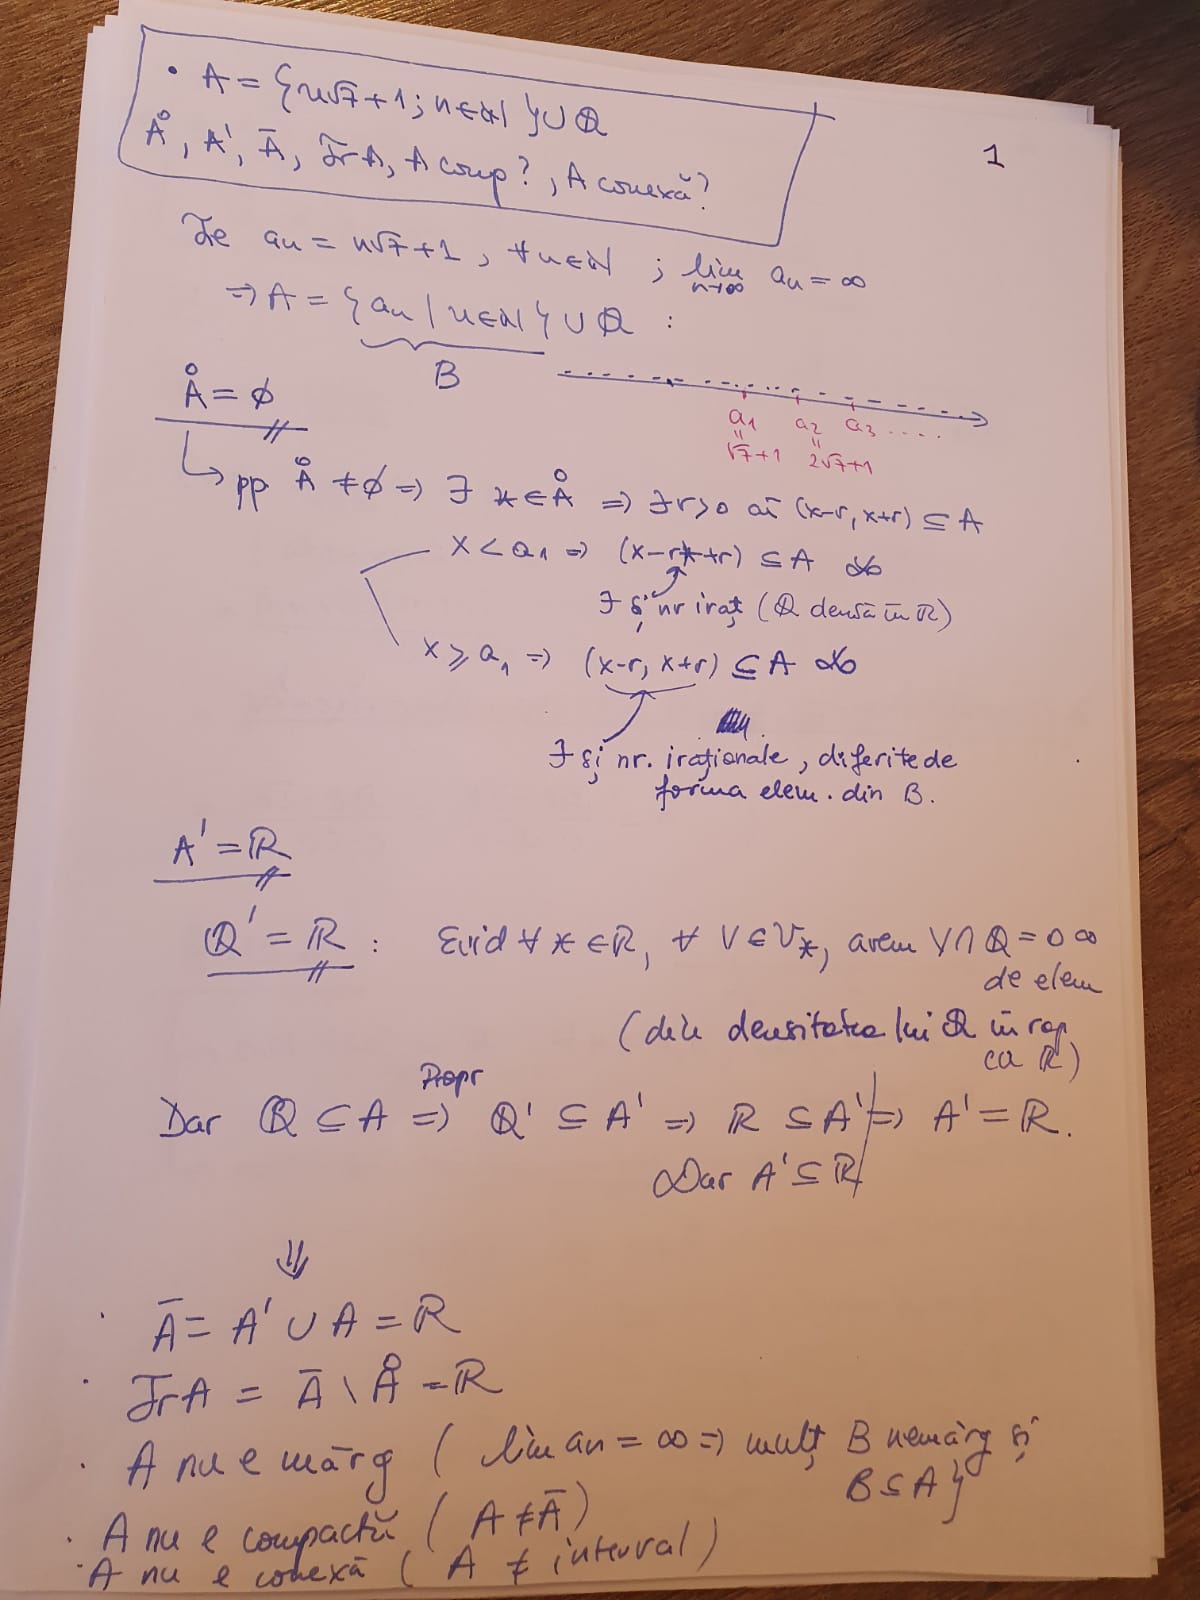 • A = {n√7+1; n∈ℕ} ∪ ℚ
Å, A', Ā, Fr A, A comp?, A conexă?
1
Fie an = n√7+1, ∀n∈ℕ ; lim n→∞ an = ∞
⇒ A = {an | n∈ℕ} ∪ ℚ :
B
a1 a2 a3 ....
= =
√7+1 2√7+1
Å = ∅
pp Å ≠ ∅ ⇒ ∃ x∈Å ⇒ ∃r>0 aî (x-r, x+r) ⊆ A
x < a1 ⇒ (x-r, x+r) ⊆ A
∃ și nr iraț (ℚ densă în ℝ)
x ≥ a1 ⇒ (x-r, x+r) ⊆ A
∃ și nr. iraționale, diferite de
forma elem. din B.
A' = ℝ
ℚ' = ℝ : Evid ∀ x∈ℝ, ∀ V∈𝒱x, avem V∩ℚ = o ∞
de elem
(din densitatea lui ℚ în rap
cu ℝ)
Propr
Dar ℚ ⊆ A ⇒ ℚ' ⊆ A' ⇒ ℝ ⊆ A' ⇒ A' = ℝ.
Dar A' ⊆ ℝ
⇓
· Ā = A' ∪ A = ℝ
· Fr A = Ā \ Å = ℝ
· A nu e mărg (lim an = ∞ ⇒ mulț B nemărg și
B ⊆ A}
· A nu e compactă (A ≠ Ā)
· A nu e conexă (A ≠ interval)